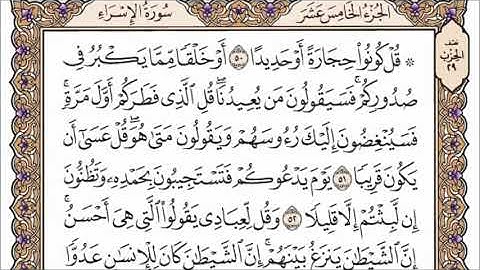 سُورَةُ الإِسْرَاءِ
الجُزْءُ الخَامِسَ عَشَرَ
نصف
الحزب
٢٩
۞ قُلْ كُونُوا۟ حِجَارَةً أَوْ حَدِيدًا ۝٥٠ أَوْ خَلْقًا مِّمَّا يَكْبُرُ فِى
صُدُورِكُمْ ۚ فَسَيَقُولُونَ مَن يُعِيدُنَا ۖ قُلِ ٱلَّذِى فَطَرَكُمْ أَوَّلَ مَرَّةٍ ۚ
فَسَيُنْغِضُونَ إِلَيْكَ رُءُوسَهُمْ وَيَقُولُونَ مَتَىٰ هُوَ ۖ قُلْ عَسَىٰٓ أَن
يَكُونَ قَرِيبًا ۝٥١ يَوْمَ يَدْعُوكُمْ فَتَسْتَجِيبُونَ بِحَمْدِهِۦ وَتَظُنُّونَ
إِن لَّبِثْتُمْ إِلَّا قَلِيلًا ۝٥٢ وَقُل لِّعِبَادِى يَقُولُوا۟ ٱلَّتِى هِىَ أَحْسَنُ ۚ
إِنَّ ٱلشَّيْطَٰنَ يَنزَغُ بَيْنَهُمْ ۚ إِنَّ ٱلشَّيْطَٰنَ كَانَ لِلْإِنسَٰنِ عَدُوًّا